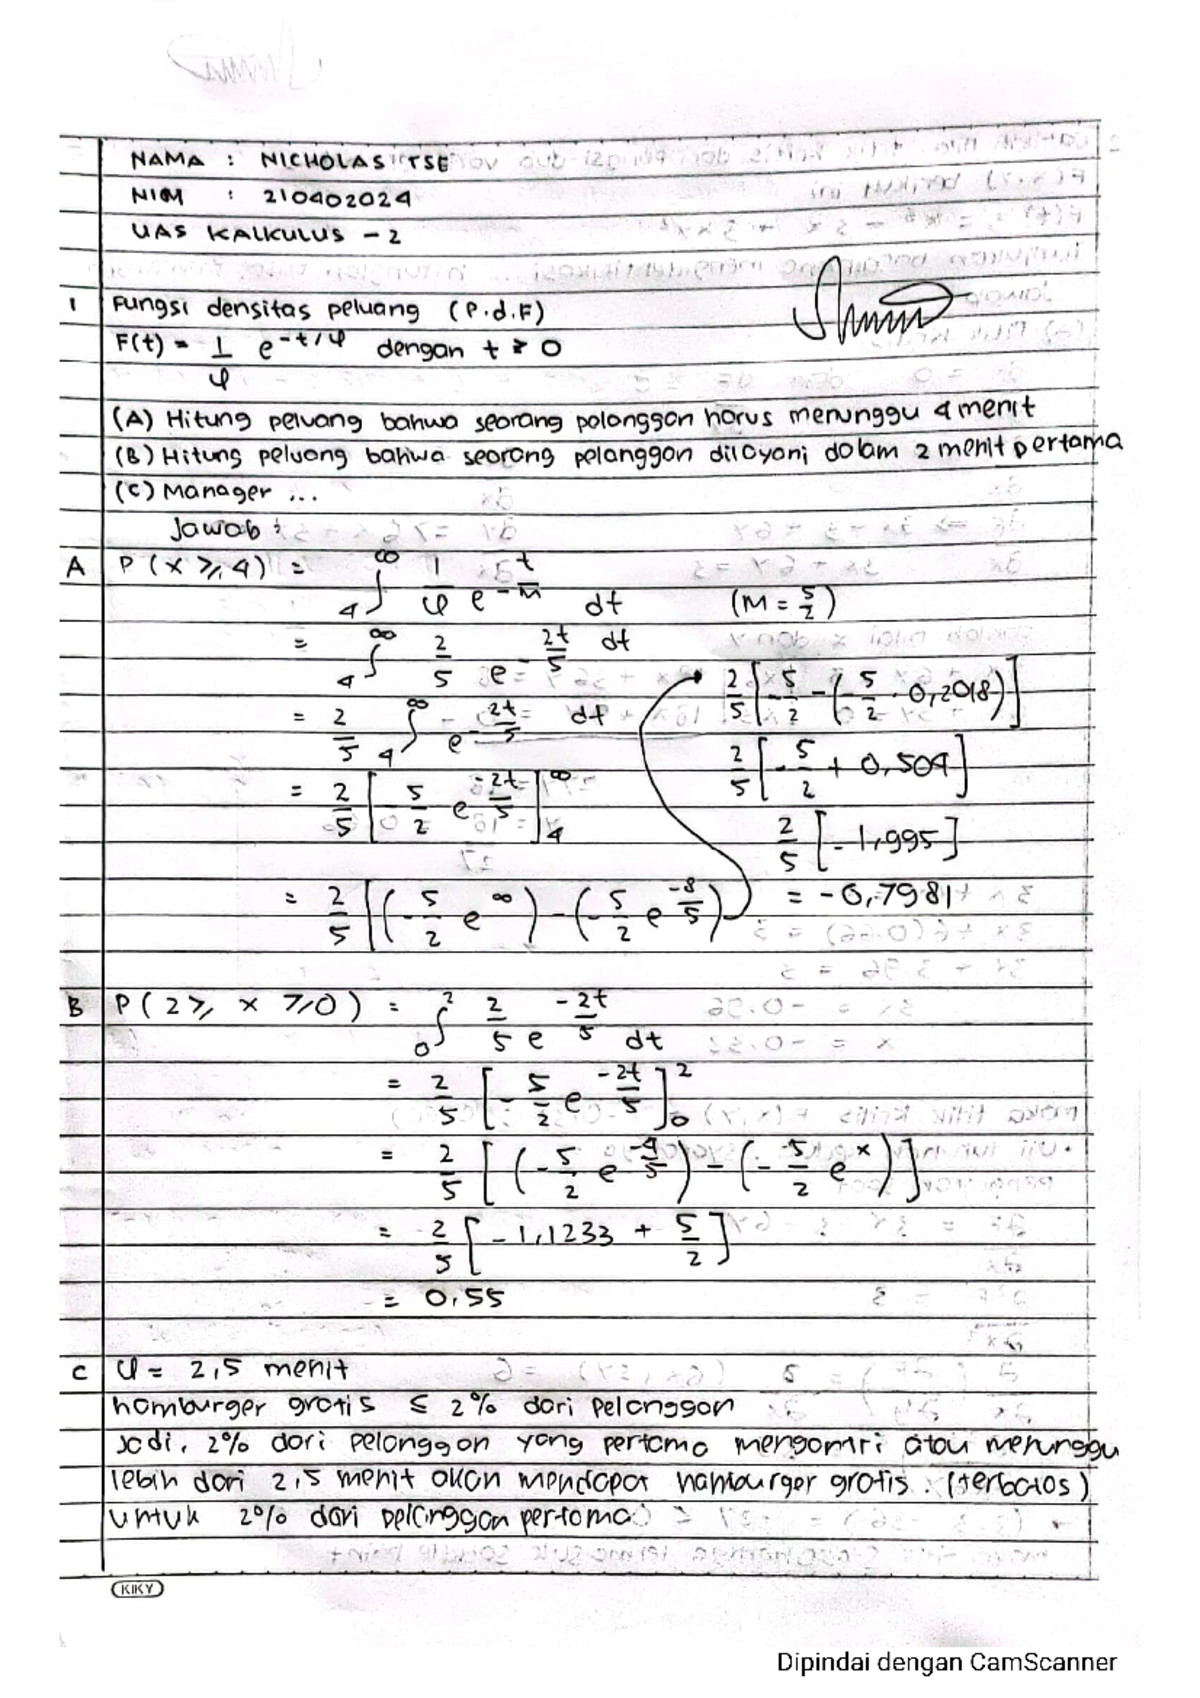 NAMA : NICHOLAS TSE
NIM : 210402024
UAS KALKULUS - 2
1 Fungsi densitas peluang (P.d.F)
F(t) = 1/φ e^-t/φ dengan t ≥ 0
(A) Hitung peluang bahwa seorang polanggan harus menunggu 4 menit
(B) Hitung peluang bahwa seorang pelanggan dilayani dalam 2 menit pertama
(C) Manager ...
Jawab :
A P (x ≥ 4) = ∫_4^∞ 1/φ e^-t/M dt (M = 5/2)
= ∫_4^∞ 2/5 e^-2t/5 dt
= 2/5 ∫_4^∞ e^-2t/5 dt
= 2/5 [-5/2 e^-2t/5]_4^∞
= 2/5 [(-5/2 e^∞) - (-5/2 e^-8/5)
2/5 [-5/2 - (-5/2 . 0,2018)]
2/5 [-5/2 + 0,504]
2/5 [-1,995]
= -0,7981
B P ( 2 ≥ x ≥ 0 ) = ∫_0^2 2/5 e^-2t/5 dt
= 2/5 [-5/2 e^-2t/5]_0^2
= 2/5 [(-5/2 e^-4/5) - (-5/2 e^x)]
= 2/5 [-1,1233 + 5/2]
= 0,55
C φ = 2,5 menit
hamburger gratis ≤ 2% dari Pelanggan
Jadi, 2% dari pelanggan yang pertama mengantri atau menunggu
lebih dari 2,5 menit akan mendapat hamburger gratis. (terbatas)
untuk 2% dari pelanggan pertama
KIKY
Dipindai dengan CamScanner